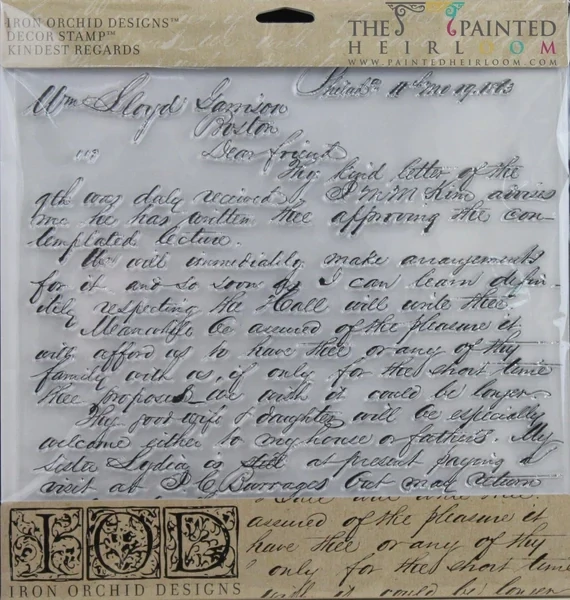 IRON ORCHID DESIGNS™
DECOR STAMP™
KINDEST REGARDS
THE PAINTED
HEIRLOOM
WWW.PAINTEDHEIRLOOM.COM
Philada 11th mo 19. 1863
Wm Lloyd Garrison
Boston
Dear friend
Thy kind letter of the
9th was duly received. J M M Kim advises
me he has written thee approving the con-
templated lecture.
We will immediately make arrangements
for it and so soon as I can learn defin-
itely respecting the Hall will write thee.
Meanwhile be assured of the pleasure it
will afford us to have thee or any of thy
family with us, if only for the short time
thee proposes we wish it could be longer
Thy good wife & daughter will be especially
welcome either to my house or father's. My
sister Lydia is still at present paying a
visit at J. C. Burrages but may return
IOD
IRON ORCHID DESIGNS
assured of the pleasure it
have thee or any of thy
only for the short time
it could be longer